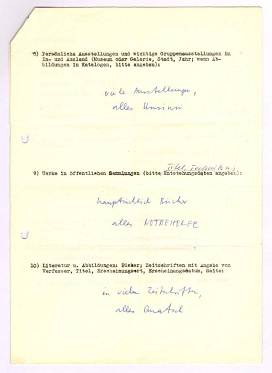 8) Persönliche Ausstellungen und wichtige Gruppenausstellungen im
In- und Ausland (Museum oder Galerie, Stadt, Jahr; wenn Ab-
bildungen in Katalogen, bitte angeben):
viele Ausstellungen,
alles Unsinn
Titel, Techniken,
9) Werke in öffentlichen Sammlungen (bitte Entstehungsdaten angeben):
hauptsächlich Bücher
alles NOTBEHELFE
10) Literatur u. Abbildungen: Bücher; Zeitschriften mit Angabe von
Verfasser, Titel, Erscheinungsort, Erscheinungsdatum, Seite:
in vielen Zeitschriften,
alles Quatsch